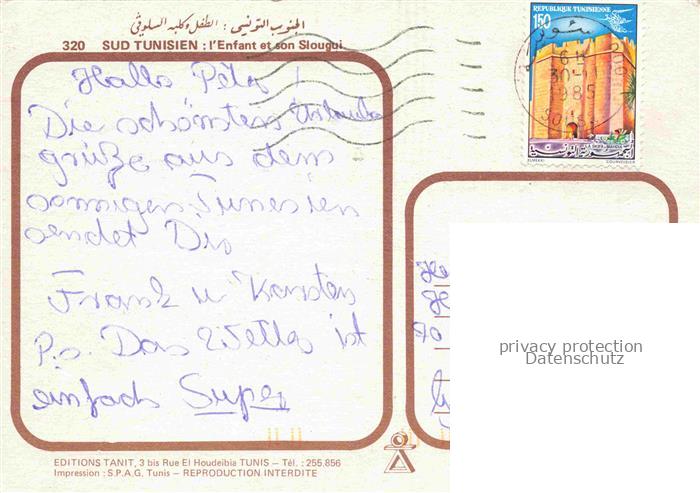 الجنوب التونسي : الطفل وكلبه السلوقي
320 SUD TUNISIEN : l'Enfant et son Slougui
REPUBLIQUE TUNISIENNE
150
30-11
1985
Hallo Peter !
Die schönsten Urlaubs
grüße aus dem
sonnigen Tunesien
sendet Dir
Frank u. Karsten
P.s. Das Wetter ist
einfach Super
70
privacy protection
Datenschutz
EDITIONS TANIT, 3 bis Rue El Houdeibia TUNIS – Tél. : 255.856
Impression : S.P.A.G. Tunis – REPRODUCTION INTERDITE